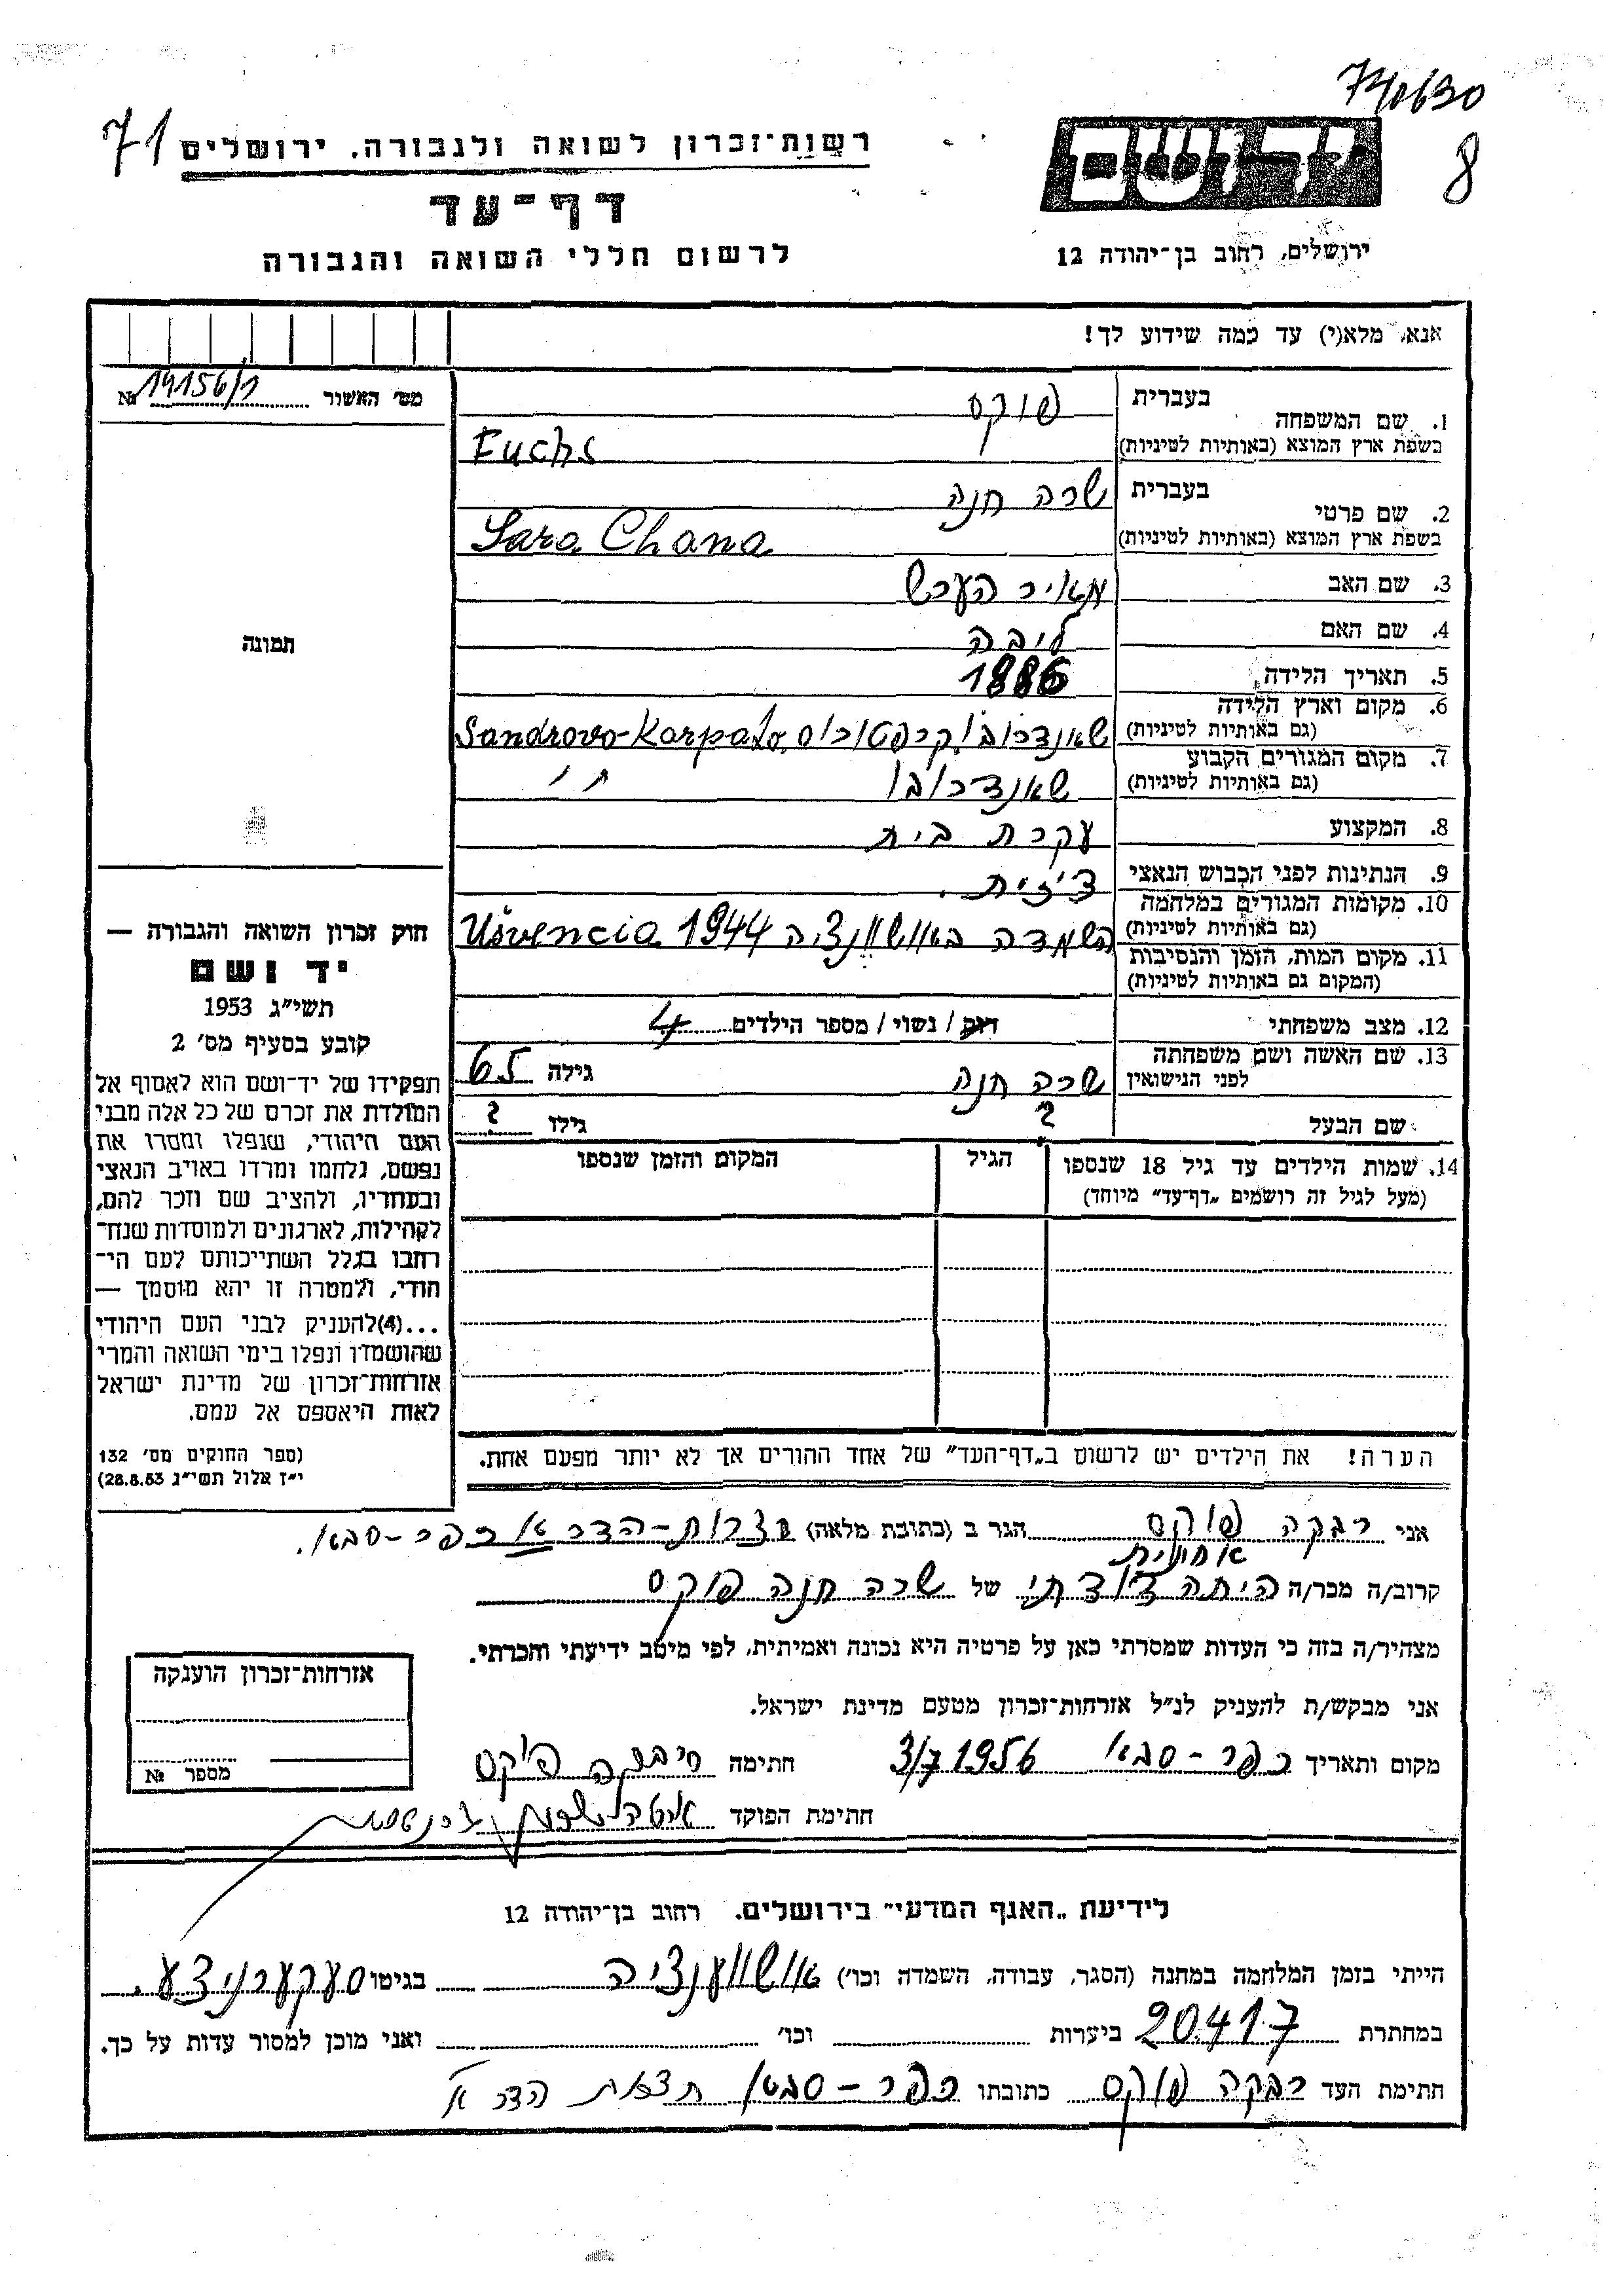 740630
8
71
רשות־זכרון לשואה ולגבורה, ירושלים
יד ושם
דף־עד
ירושלים, רחוב בן־יהודה 12
לרשום חללי השואה והגבורה
אנא, מלא(י) עד כמה שידוע לך!
מס׳ האשור № 14156/1
1. שם המשפחה
בעברית פוקס
בשפת ארץ המוצא (באותיות לטיניות) Fuchs
2. שם פרטי
בעברית שרה חנה
בשפת ארץ המוצא (באותיות לטיניות) Sara Chana
3. שם האב מאיר הערש
4. שם האם ליבה
5. תאריך הלידה 1886
6. מקום וארץ הלידה
(גם באותיות לטיניות) שאנדרובו קרפטורוס Sandrovo-Karpato
7. מקום המגורים הקבוע
(גם באותיות לטיניות) שאנדרובו ״
8. המקצוע עקרת בית
9. הנתינות לפני הכבוש הנאצי צ׳כית
10. מקומות המגורים במלחמה
(גם באותיות לטיניות) השמדה באוושוונציה 1944 Ušvencia
11. מקום המות, הזמן והנסיבות
(המקום גם באותיות לטיניות)
12. מצב משפחתי רווק / נשוי / מספר הילדים 4
13. שם האשה ושם משפחתה
לפני הנישואין שרה חנה גילה 65
שם הבעל ? גילו ?
14. שמות הילדים עד גיל 18 שנספו הגיל המקום והזמן שנספו
(מעל לגיל זה רושמים „דף־עד״ מיוחד)
הערה! את הילדים יש לרשום ב„דף־העד״ של אחד ההורים אך לא יותר מפעם אחת.
תמונה
חוק זכרון השואה והגבורה —
יד ושם
תשי״ג 1953
קובע בסעיף מס׳ 2
תפקידו של יד־ושם הוא לאסוף אל
המולדת את זכרם של כל אלה מבני
העם היהודי, שנפלו ומסרו את
נפשם, נלחמו ומרדו באויב הנאצי
ובעוזריו, ולהציב שם וזכר להם,
לקהילות, לארגונים ולמוסדות שנח־
רבו בגלל השתייכותם לעם הי־
הודי, ולמטרה זו יהא מוסמך —
...(4) להעניק לבני העם היהודי
שהושמדו ונפלו בימי השואה והמרי
אזרחות־זכרון של מדינת ישראל
לאות היאספם אל עמם.
(ספר החוקים מס׳ 132
י״ז אלול תשי״ג 28.8.53)
אני רבקה פוקס הגר ב (כתובת מלאה) חצרות-הדר א כפר-סבא.
קרוב/ה מכר/ה היתה דודתי של שרה חנה פוקס
מצהיר/ה בזה כי העדות שמסרתי כאן על פרטיה היא נכונה ואמיתית, לפי מיטב ידיעתי והכרתי.
אני מבקש/ת להעניק לנ״ל אזרחות־זכרון מטעם מדינת ישראל.
מקום ותאריך כפר-סבא 3/7 1956 חתימה רבקה פוקס
חתימת הפוקד
אזרחות־זכרון הוענקה
מספר №
לידיעת „האגף המדעי״ בירושלים. רחוב בן־יהודה 12
הייתי בזמן המלחמה במחנה (הסגר, עבודה, השמדה וכו׳) אושווענציה בגיטו סעקערניצע.
במחתרת 20417 ביערות וכו׳ ואני מוכן למסור עדות על כך.
חתימת העד רבקה פוקס כתובתו כפר-סבא חצרות הדר א׳